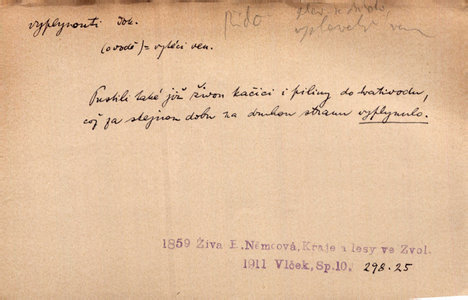 vyplynouti dok. Řído
(o vodě) = vytéci ven.
Pustili také již živou kačici i piliny do
což za stejnou dobu na druhou stranu vyplynulo.
1859 Živa B. Němcová, Kraje a lesy ve Zvol.
1911 Vlček, Sp.10. 298.25